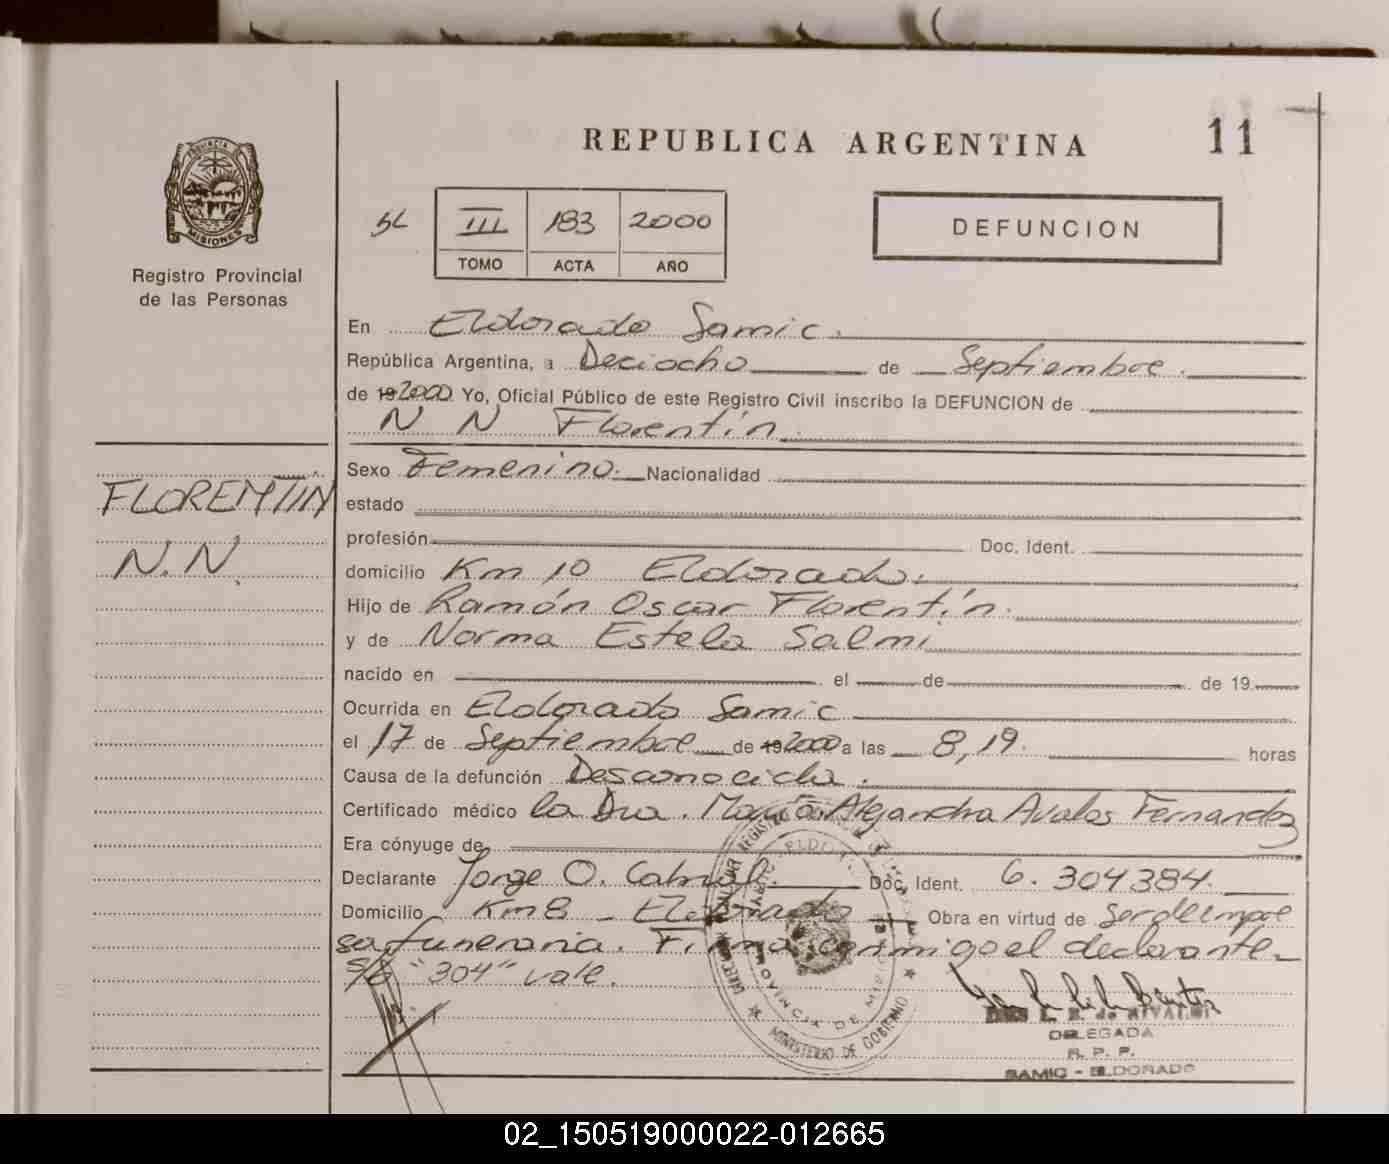 REPUBLICA ARGENTINA 11
PROVINCIA DE
MISIONES
Registro Provincial
de las Personas
III 183 2000
TOMO ACTA AÑO
DEFUNCION
En Eldorado Samic.
República Argentina, a Deciocho de Septiembre.
de 19 2000 Yo, Oficial Público de este Registro Civil inscribo la DEFUNCION de
N N Florentín
Sexo Femenino. Nacionalidad
FLORENTIN
N.N.
estado
profesión Doc. Ident.
domicilio Km 10 Eldorado.
Hijo de Ramón Oscar Florentín.
y de Norma Estela Salmi
nacido en el de de 19
Ocurrida en Eldorado Samic
el 17 de Septiembre de 19 2000 a las 8,19. horas
Causa de la defunción Desconocida.
Certificado médico la Dra. María Alejandra Avalos Fernandez
Era cónyuge de
Declarante Jorge O. Cabral. Doc. Ident. 6.304384.
Domicilio Km 8 - Eldorado Obra en virtud de ser de empre
sa funeraria. Firma conmigo el declarante_
S/b "304" vale.
MINISTERIO DE GOBIERNO
PROVINCIA DE MISIONES
DELEGADA
R. P. P.
SAMIC - ELDORADO
02_150519000022-012665